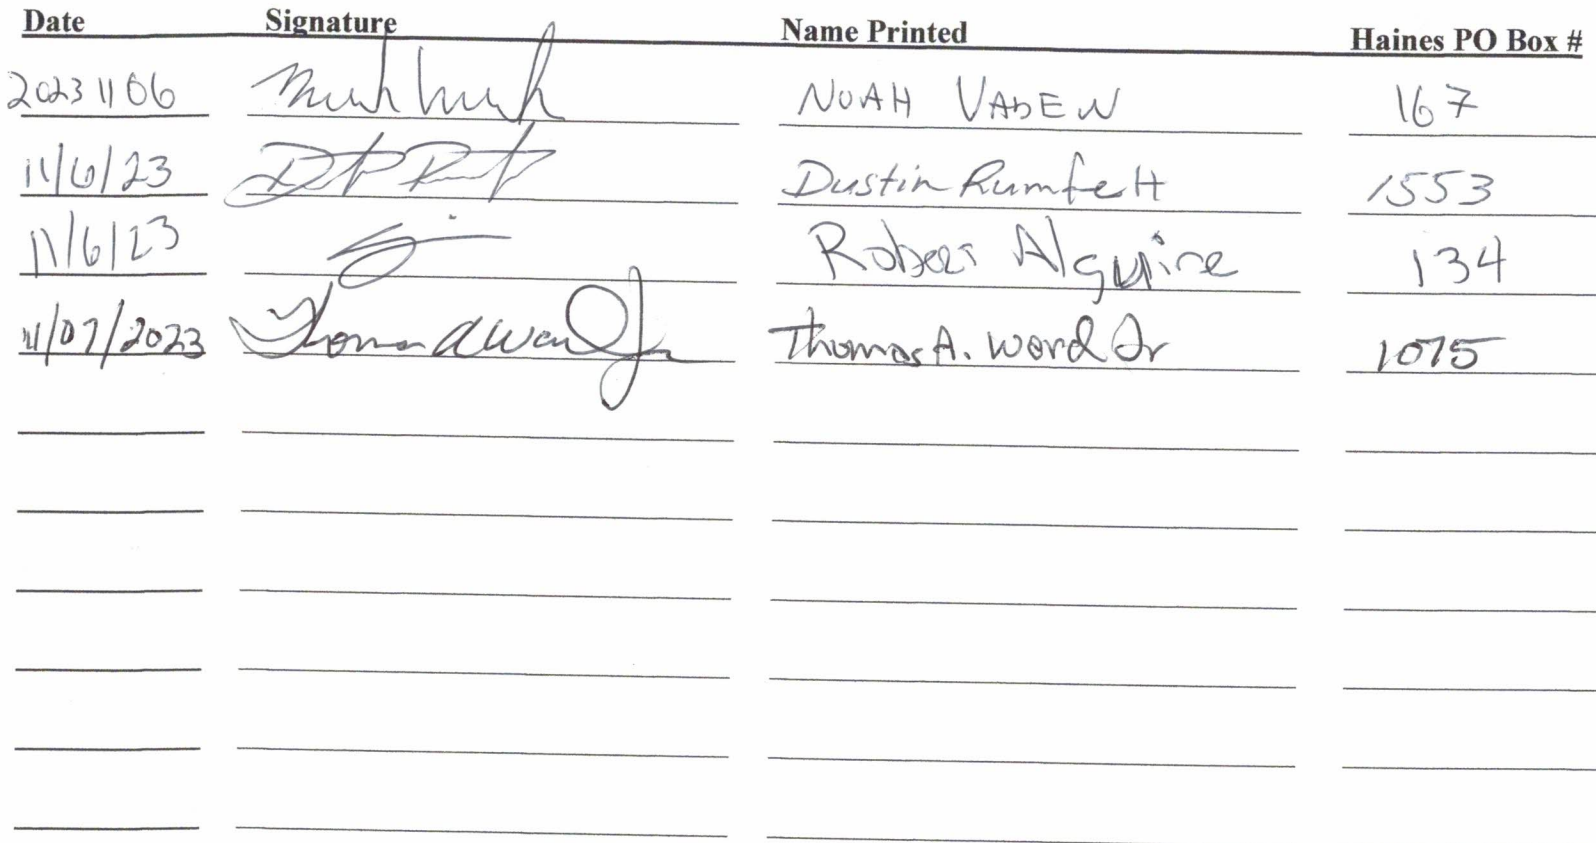 Date Signature Name Printed Haines PO Box #
20231106 NOAH VADEN 167
11/6/23 Dustin Rumfelt 1553
11/6/23 Robert Alguire 134
11/07/2023 Thomas A Ward Jr Thomas A. Ward Jr 1075